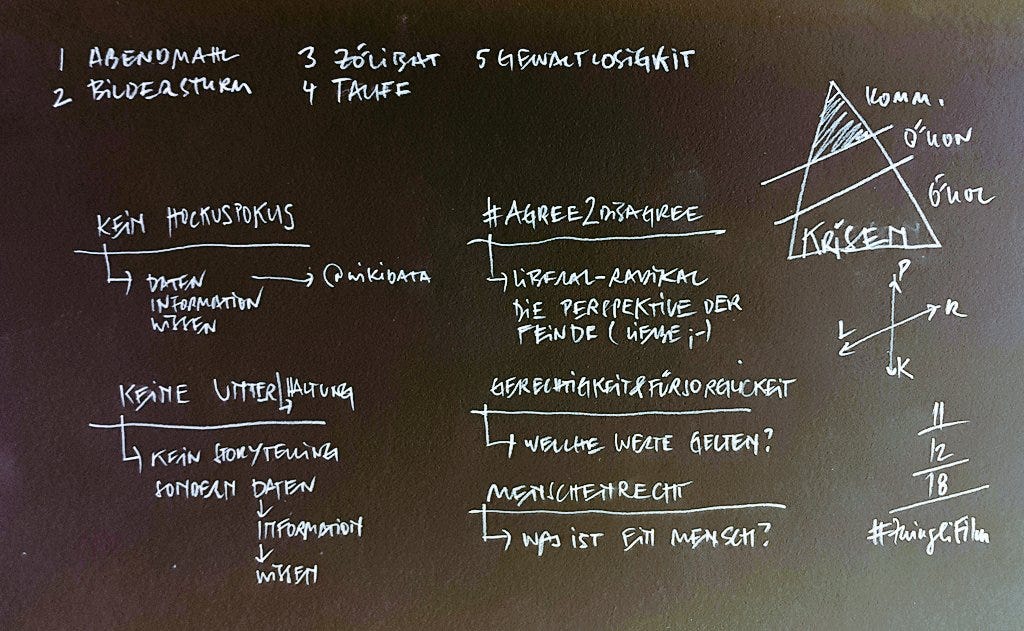 1 ABENDMAHL
2 BILDERSTURM
3 ZÖLIBAT
4 TAUFE
5 GEWALTLOSIGKEIT
KEIN HOCKUSPOKUS
DATEN
INFORMATION
WISSEN
@WIKIDATA
KEINE UNTER/HALTUNG
KEIN STORYTELLING
SONDERN DATEN
INFORMATION
WISSEN
#AGREE2DISAGREE
LIBERAL-RADIKAL
DIE PERSPEKTIVE DER
FEINDE (LIEBE ;-)
GERECHTIGKEIT&FÜRSORGLICKEIT
WELCHE WERTE GELTEN?
MENSCHENRECHT
WAS IST EIN MENSCH?
KOMM.
ÖKON
ÖKOL
KRISEN
P
L
R
K
11
12
18
#ZwingliFilm